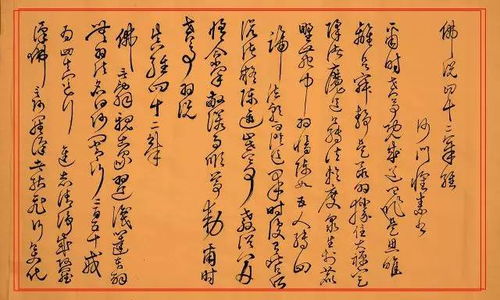 佛說四十二章經
沙門懷素書
爾時世尊既成道已作是思惟
離欲寂靜是最為勝住大禪定
降諸魔道今轉法輪度眾生於鹿
野苑中為憍陳如五人轉四
諦法輪而證道果時復有比丘所
說諸疑陳進止世尊教詔一一開
悟合掌敬諾而順尊敕爾時
世尊為說
真經四十二章
佛言辭親出家為道識心達本解
無為法名曰沙門常行二百五十戒
為四真道行進志清淨成阿羅
漢佛言阿羅漢者能飛行變化